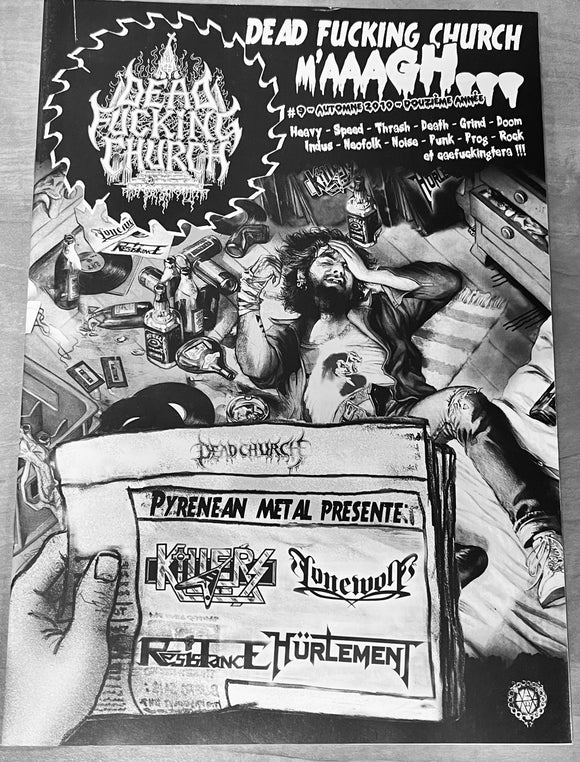 DEAD FUCKING CHURCH
M'AAAGH...
#9 - AUTOMNE 2010 - DOUZIÈME ANNÉE
Heavy - Speed - Thrash - Death - Grind - Doom
Indus - Neofolk - Noise - Punk - Prog - Rock
DEAD
FUCKING
CHURCH
KILLERS
HÜRLEMENT
Lonewolf
Resistance
DEAD CHURCH
PYRENEAN METAL PRESENTE:
KILLERS
Lonewolf
Resistance
HÜRLEMENT